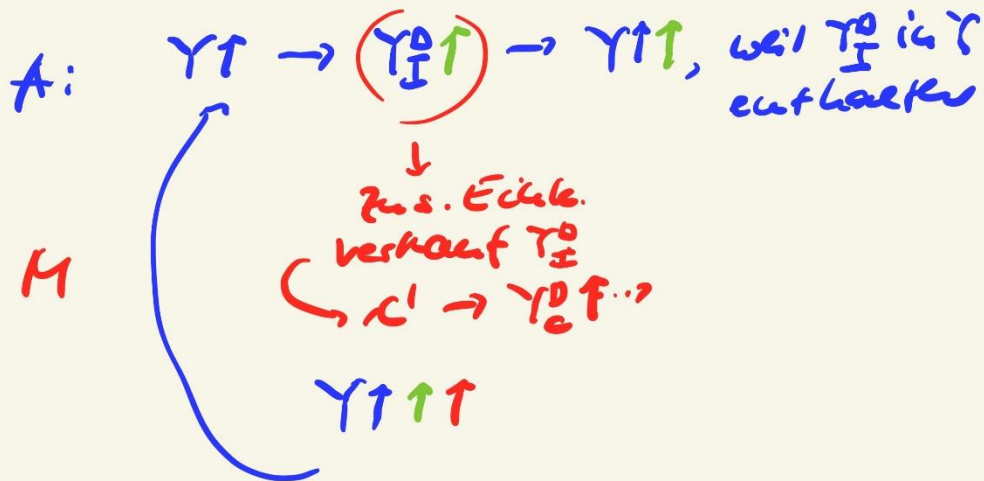 A: Y↑ → Y_I^D↑ → Y↑↑, weil Y_I^D in Y
enthalten
↓
zus. Eink.
verkauf Y_I^D
M
c' → Y_C^D↑...→
Y↑↑↑